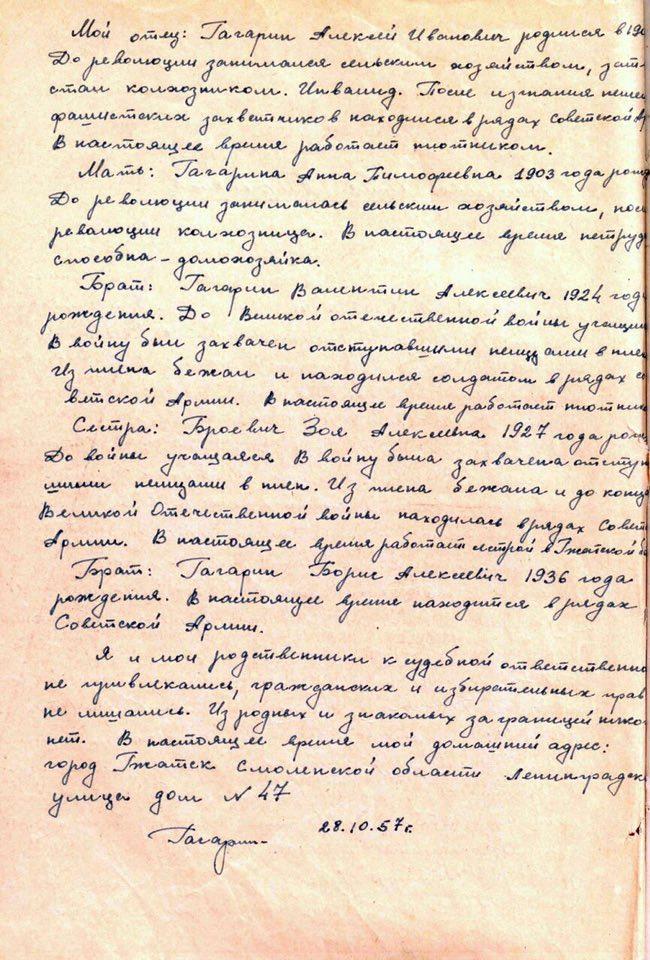 Мой отец: Гагарин Алексей Иванович родился в 190
До революции занимался сельским хозяйством, зат
стал колхозником. Инвалид. После изгнания немец
фашистских захватчиков находился в рядах Советской Ар
В настоящее время работает плотником.
Мать: Гагарина Анна Тимофеевна 1903 года рожд
До революции занималась сельским хозяйством, посл
революции колхозница. В настоящее время нетрудо
способна – домохозяйка.
Брат: Гагарин Валентин Алексеевич 1924 года
рождения. До Великой отечественной войны учащий
В войну был захвачен отступавшими немцами в плен
Из плена бежал и находился солдатом в рядах со
ветской Армии. В настоящее время работает плотник
Сестра: Броевич Зоя Алексеевна 1927 года рожд
До войны учащаяся В войну была захвачена отступ
шими немцами в плен. Из плена бежала и до конца
Великой Отечественной войны находилась в рядах Совет
Армии. В настоящее время работает сестрой в Гжатской бо
Брат: Гагарин Борис Алексеевич 1936 года
рождения. В настоящее время находится в рядах
Советской Армии.
Я и мои родственники к судебной ответственно
не привлекались, гражданских и избирательных прав
не лишались. Из родных и знакомых за границей нико
нет. В настоящее время мой домашний адрес:
город Гжатск Смоленской области Ленинградск
улица дом N 47
28.10.57г.
Гагарин